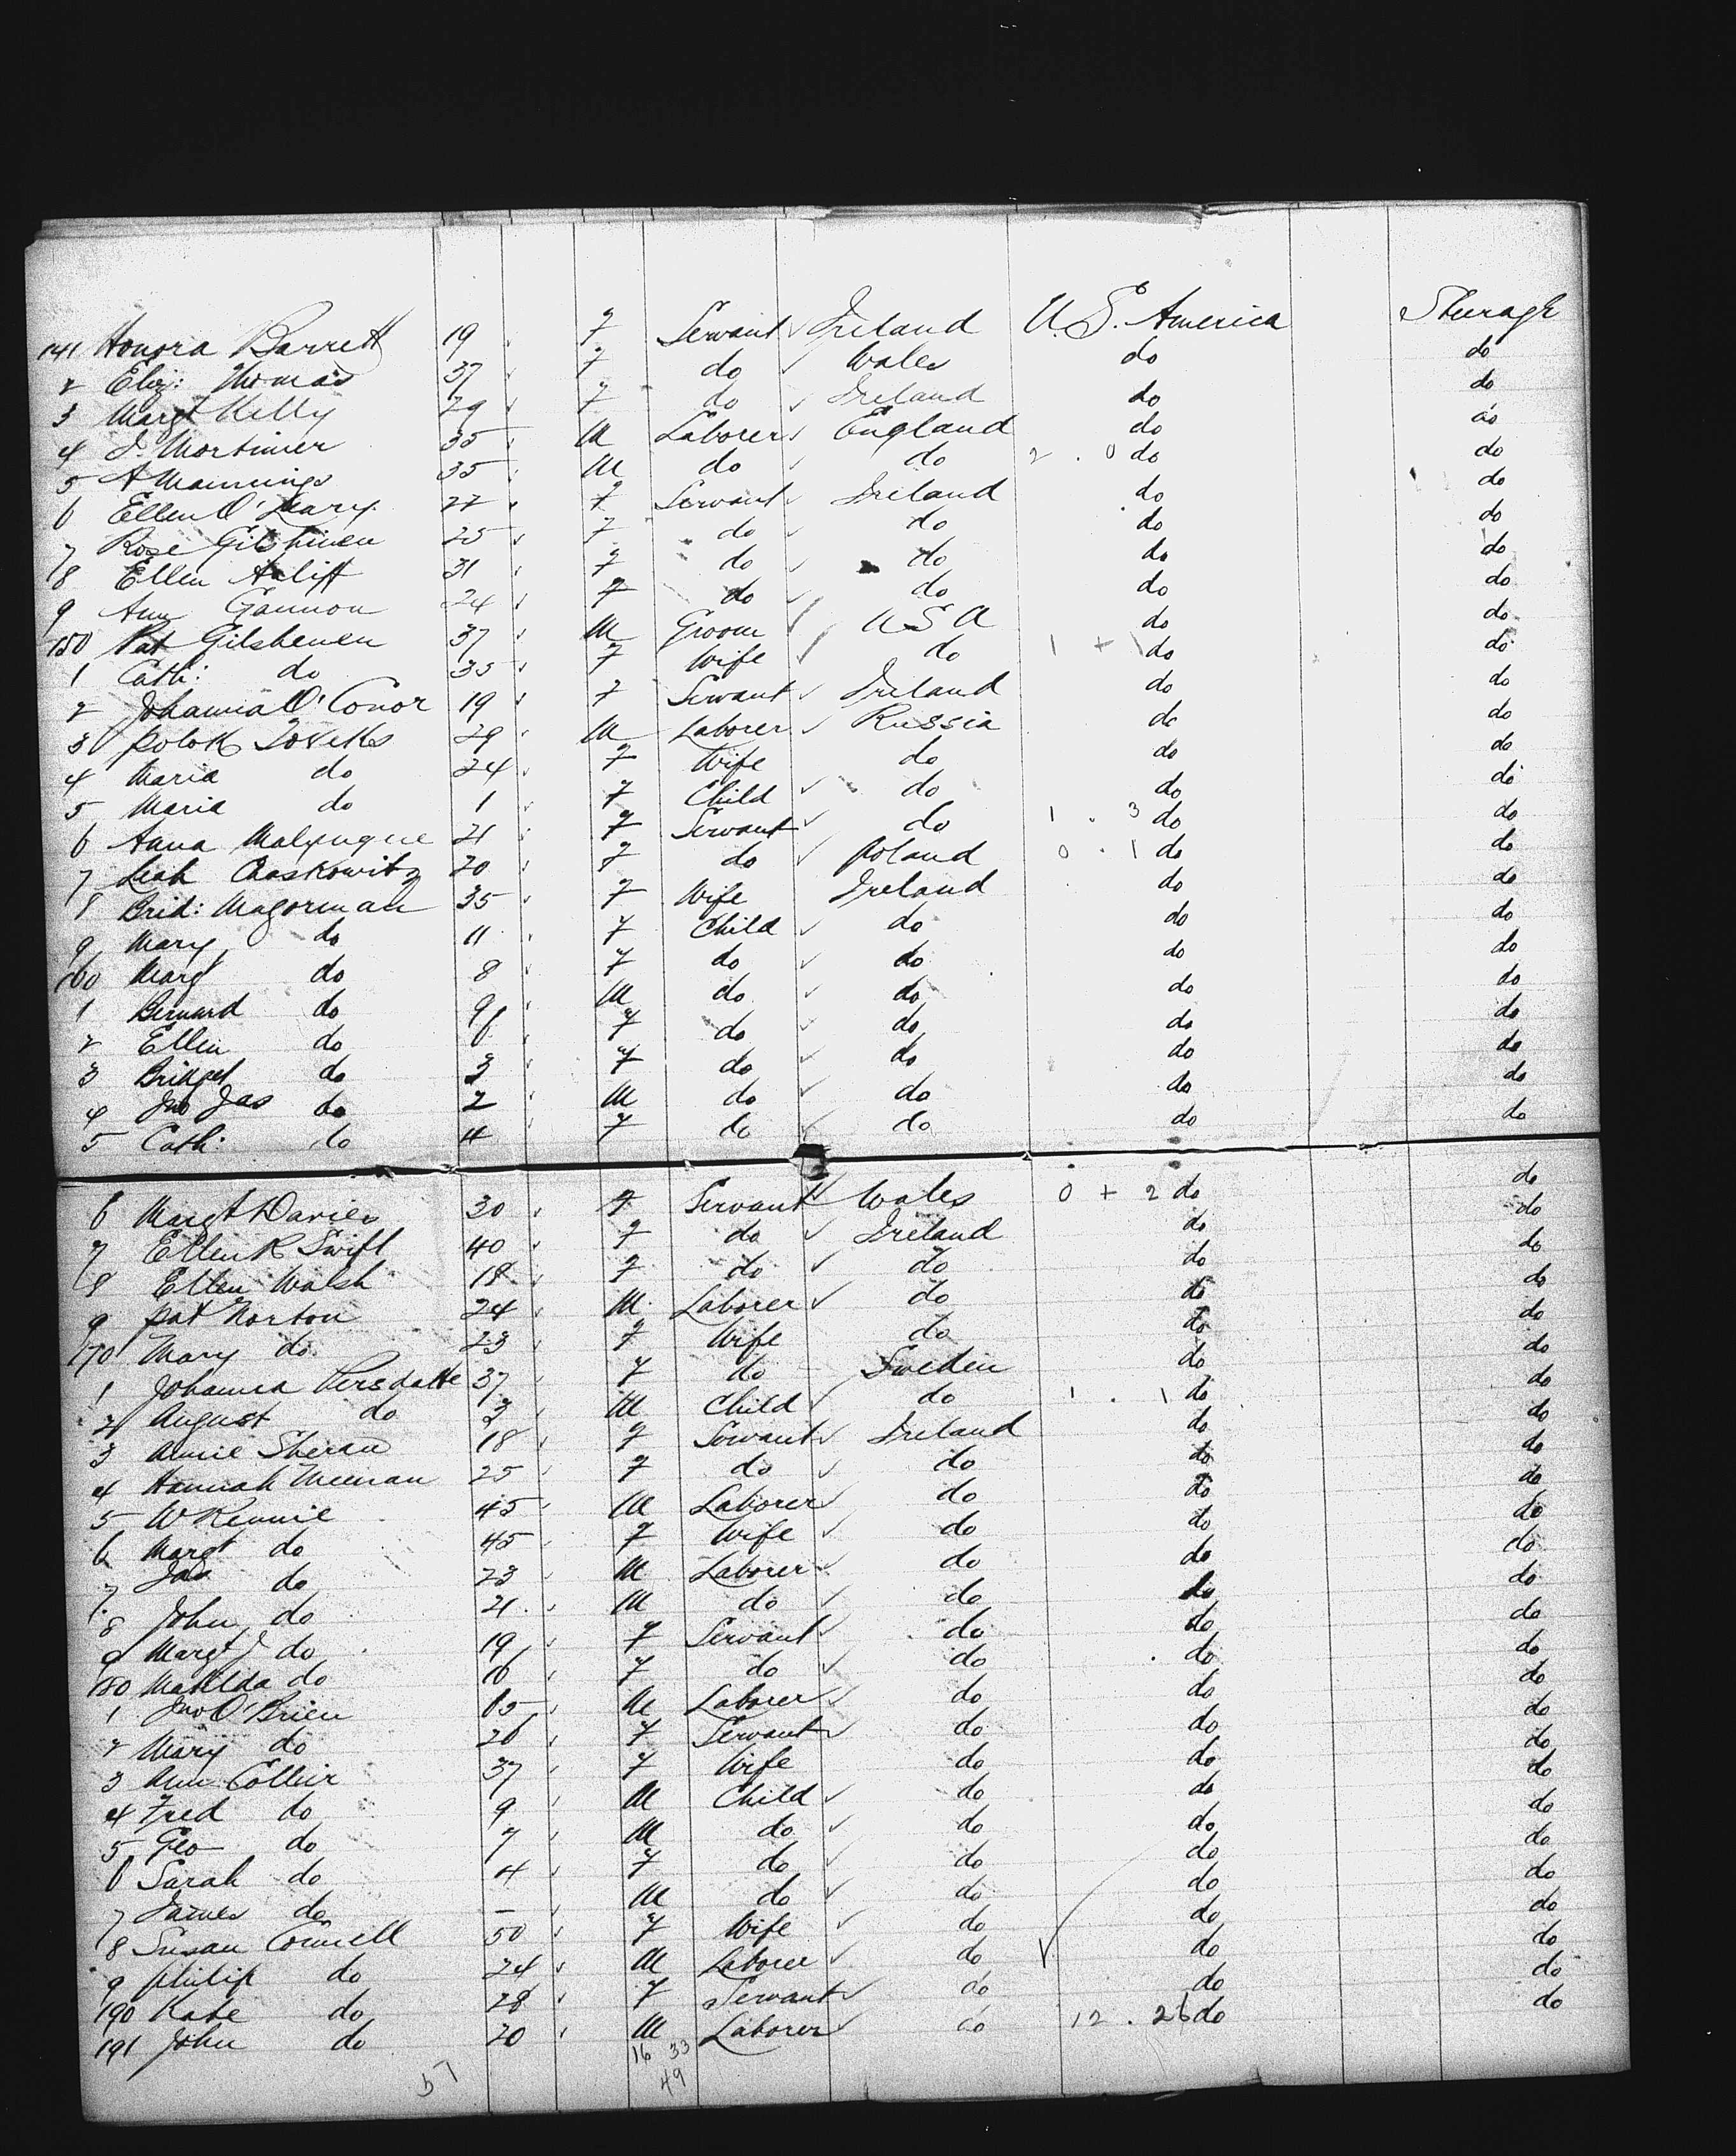 141 Honora Barrett 19 F Servant Ireland U.S. America Steerage
2 Eliz: Thomas 37 F do Wales do do
3 Margt Kelly 29 F do Ireland do do
4 J. Mortimer 35 M Laborer England do do
5 A Mannings 35 M do do 2 . 0 do do
6 Ellen O'Leary 22 F Servant Ireland do do
7 Rose Gilshinen 25 F do do do do
8 Ellen 31 F do do do do
9 Ann Gannon 24 F do do do do
150 Pat Gilshenen 37 M Groom U S A do do
1 Cath: do 35 F Wife do 1 + 1 do do
2 Johanna O'Conor 19 F Servant Ireland do do
3 29 M Laborer Russia do do
4 Maria do 24 F Wife do do do
5 Maria do 1 F Child do do do
6 Anna 21 F Servant do 1 . 3 do do
7 Leah Chaskowitz 20 F do Poland 0 . 1 do do
8 Brid: Magorman 35 F Wife Ireland do do
9 Mary do 11 F Child do do do
160 Margt do 8 F do do do do
1 Bernard do 9 M do do do do
2 Ellen do 6 F do do do do
3 Bridget do 3 F do do do do
4 Jno Jas do 2 M do do do do
5 Cath: do 4 F do do do do
6 Margt Davies 30 F Servant Wales 0 + 2 do do
7 Ellen R Swift 40 F do Ireland do do
8 Ellen Walsh 18 F do do do do
9 Pat Norton 24 M Laborer do do do
170 Mary do 23 F Wife do do do
1 Johanna Persdatte 37 F do Sweden do do
2 August do 3 M Child do 1 . 1 do do
3 Annie Sheran 18 F Servant Ireland do do
4 Hannah Meenan 25 F do do do do
5 W Rennie 45 M Laborer do do do
6 Margt do 45 F Wife do do do
7 Jas do 23 M Laborer do do do
8 John do 21 M do do do do
9 Margt J do 19 F Servant do do do
180 Matilda do 16 F do do do do
1 Jno O'Brien 65 M Laborer do do do
2 Mary do 26 F Servant do do do
3 Ann Collier 37 F Wife do do do
4 Fred do 9 M Child do do do
5 Geo do 7 M do do do do
6 Sarah do 4 F do do do do
7 James do - M do do do do
8 Susan Connell 50 F Wife do do do
9 Philip do 24 M Laborer do do do
190 Kate do 28 F Servant do do do
191 John do 20 M Laborer do 12 . 26 do do
16 33
49